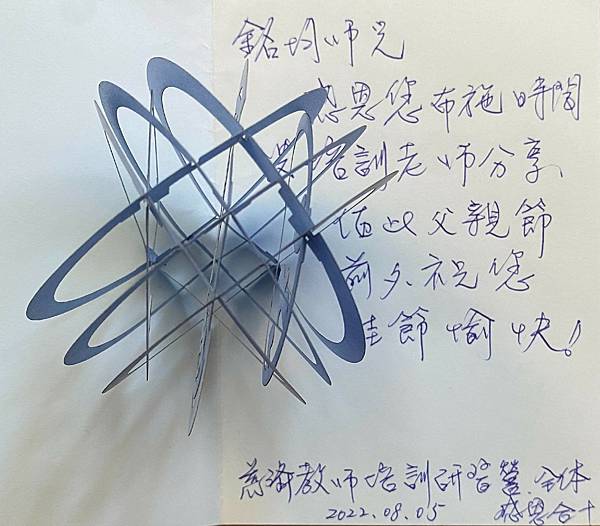 銘均師兄
感恩您布施時間
培訓老師分享
值此父親節
前夕祝您
佳節愉快!
慈濟教師培訓研習營全体
2022.08.05 感恩合十